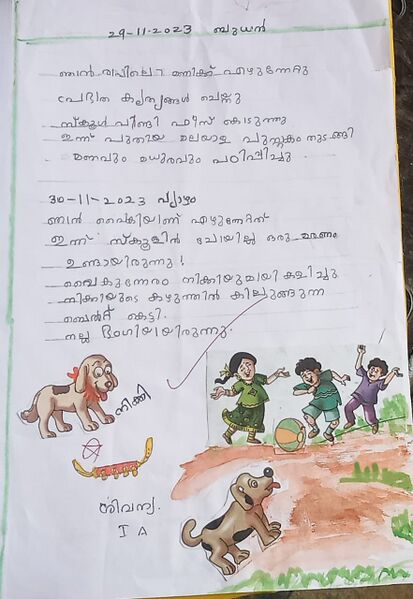 29-11-2023 ബുധൻ
ഞാൻ രാവിലെ 7 മണിക്ക് എഴുന്നേറ്റു
പ്രഭാത കൃത്യങ്ങൾ ചെയ്തു
സ്കൂൾ ഫീസ് കൊടുത്തു
ഇന്ന് പുതിയ മലയാള പുസ്തകം തുടങ്ങി
മണവും മധുരവും പഠിപ്പിച്ചു.
30-11-2023 വ്യാഴം
ഞാൻ വൈകിയാണ് എഴുന്നേറ്റത്
ഇന്ന് സ്കൂളിൽ പോയില്ല ഒരു മരണം
ഉണ്ടായിരുന്നു!
വൈകുന്നേരം നിക്കിയുമായി കളിച്ചു
നിക്കിയുടെ കഴുത്തിൽ കിലുങ്ങുന്ന
ബെൽറ്റ് കെട്ടി.
നല്ല ഭംഗിയായിരുന്നു.
നിക്കി
ശിവന്യ.
I A